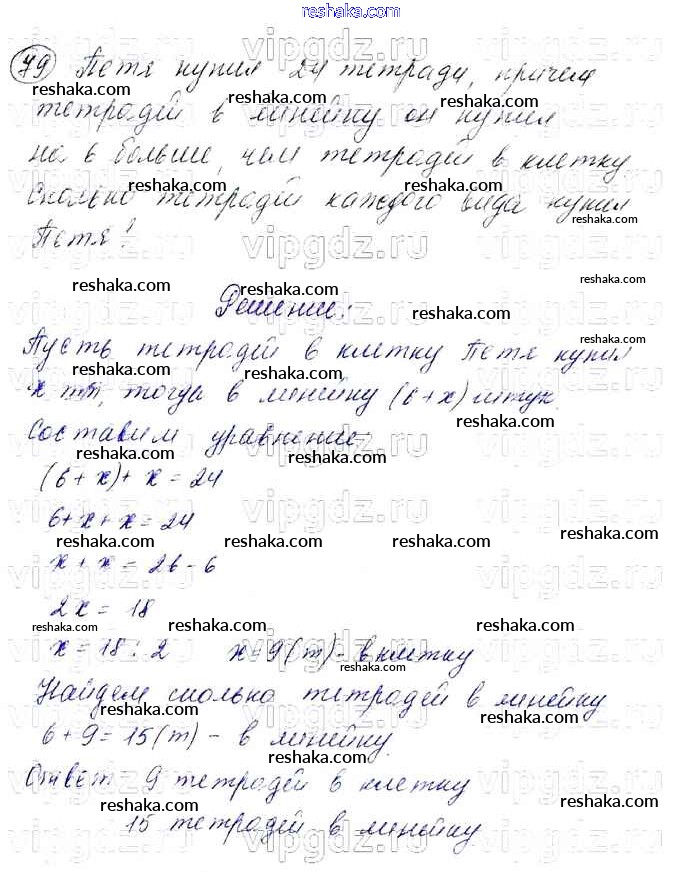 reshaka.com
79 Петя купил 24 тетради, причем
тетрадей в линейку он купил
на 6 больше, чем тетрадей в клетку
Сколько тетрадей каждого вида купил
Петя?
Решение:
Пусть тетрадей в клетку Петя купил
x шт, тогда в линейку (6+x) штук.
Составим уравнение
(6+x)+x=24
6+x+x=24
x+x=26-6
2x=18
x=18:2 x=9(т)-в клетку
Найдем сколько тетрадей в линейку
6+9=15(т)-в линейку.
Ответ 9 тетрадей в клетку
15 тетрадей в линейку